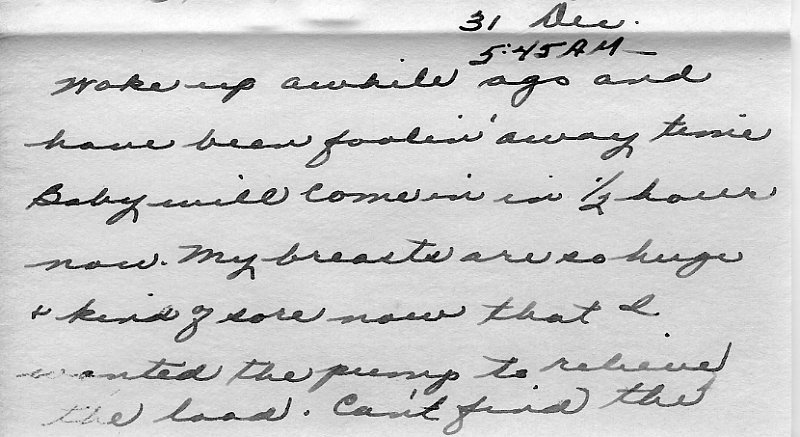 31 Dec.
5:45 AM —
Woke up awhile ago and
have been foolin' away time
Baby will come in in 1/2 hour
now. My breasts are so huge
& kind of sore now that I
wanted the pump to relieve
the load. Can't find the